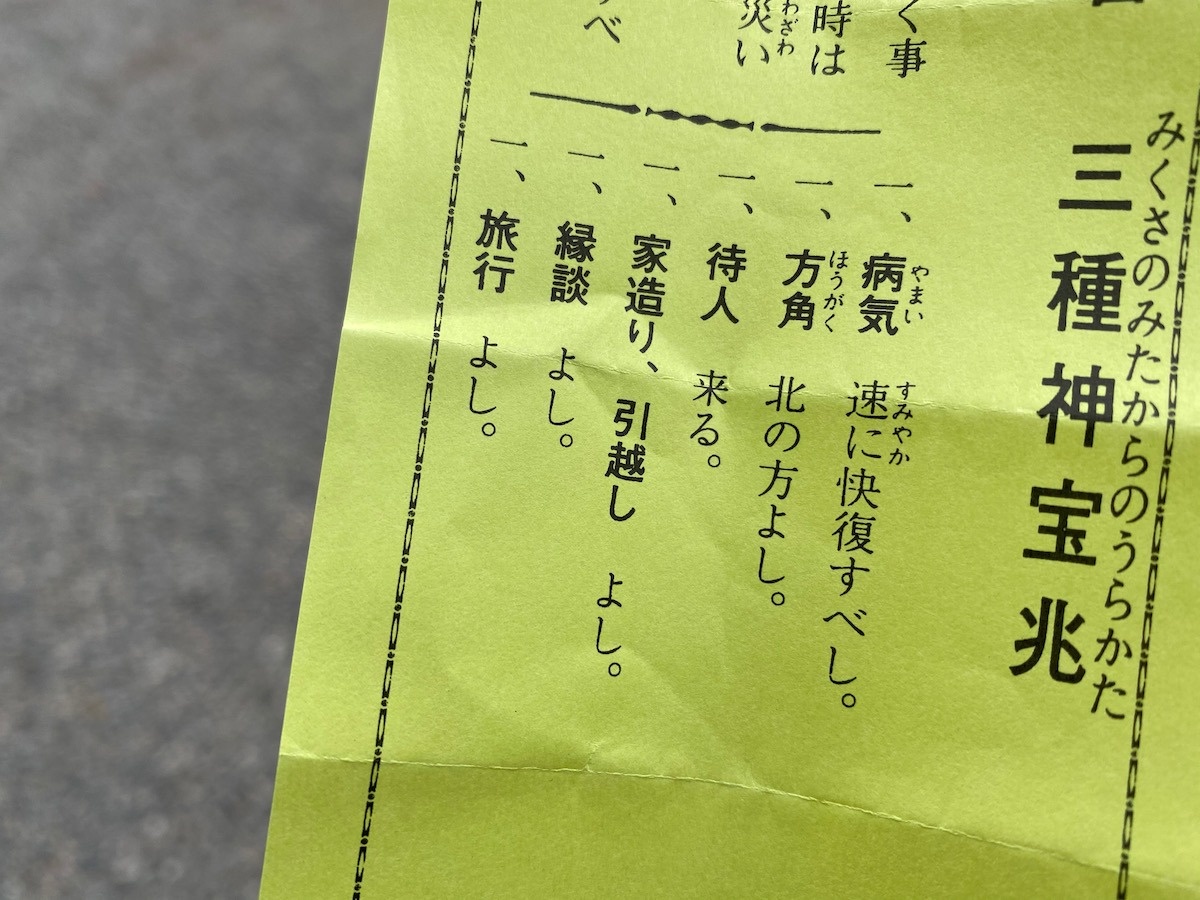 みくさのみたからのうらかた
三種神宝兆
く事
時は
災い
わざわ
べ
一、病気 速に快復すべし。
やまい
すみやか
一、方角 北の方よし。
ほうがく
一、待人 来る。
一、家造り、引越し よし。
一、縁談 よし。
一、旅行 よし。